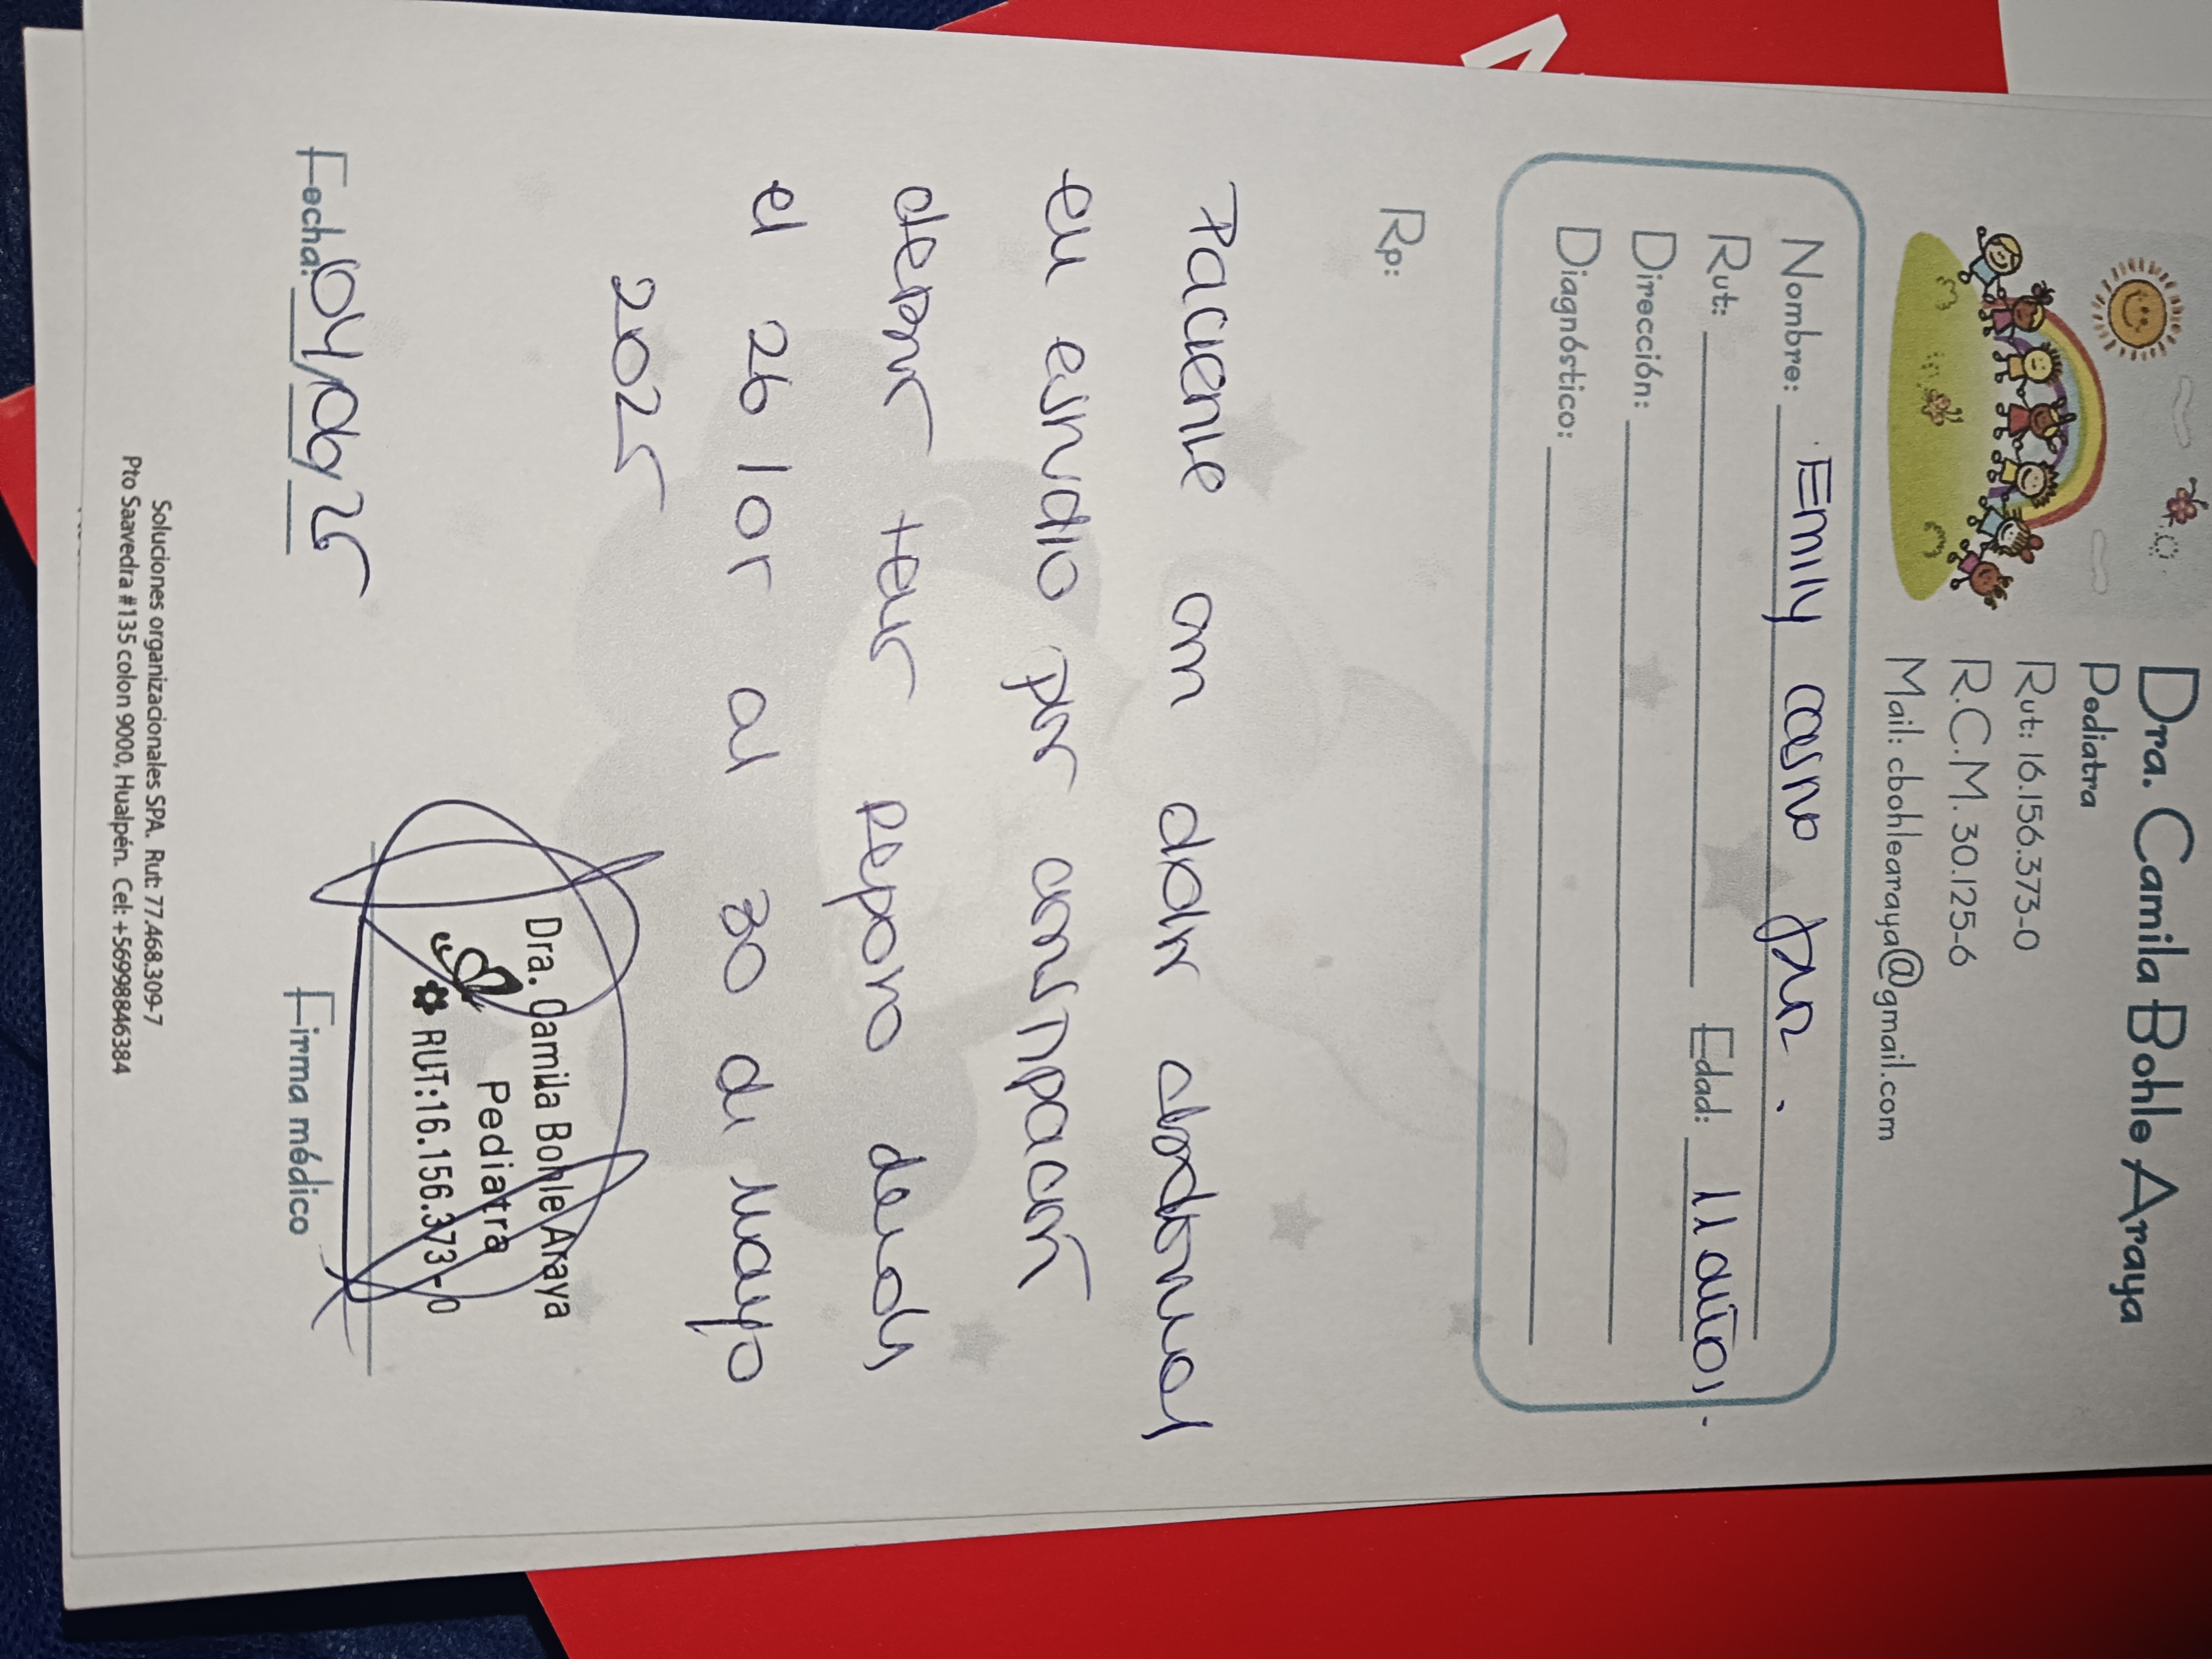 Dra. Camila Bohle Araya
Pediatra
Rut: 16.156.373-0
R.C.M. 30.125-6
Mail: cbohlearaya@gmail.com
Nombre: Emily Castro
Rut: Edad: 11 años.
Dirección:
Diagnóstico:
Rp:
Paciente con dolor abdominal
en estudio por constipación
debió tener reposo desde
el 26 al 30 de mayo
2025
Dra. Camila Bohle Araya
Pediatra
RUT:16.156.373-0
Fecha: 04/06/25 Firma médico
Soluciones organizacionales SPA. Rut: 77.468.309-7
Pto Saavedra #135 colon 9000, Hualpén. Cel: +56998846384